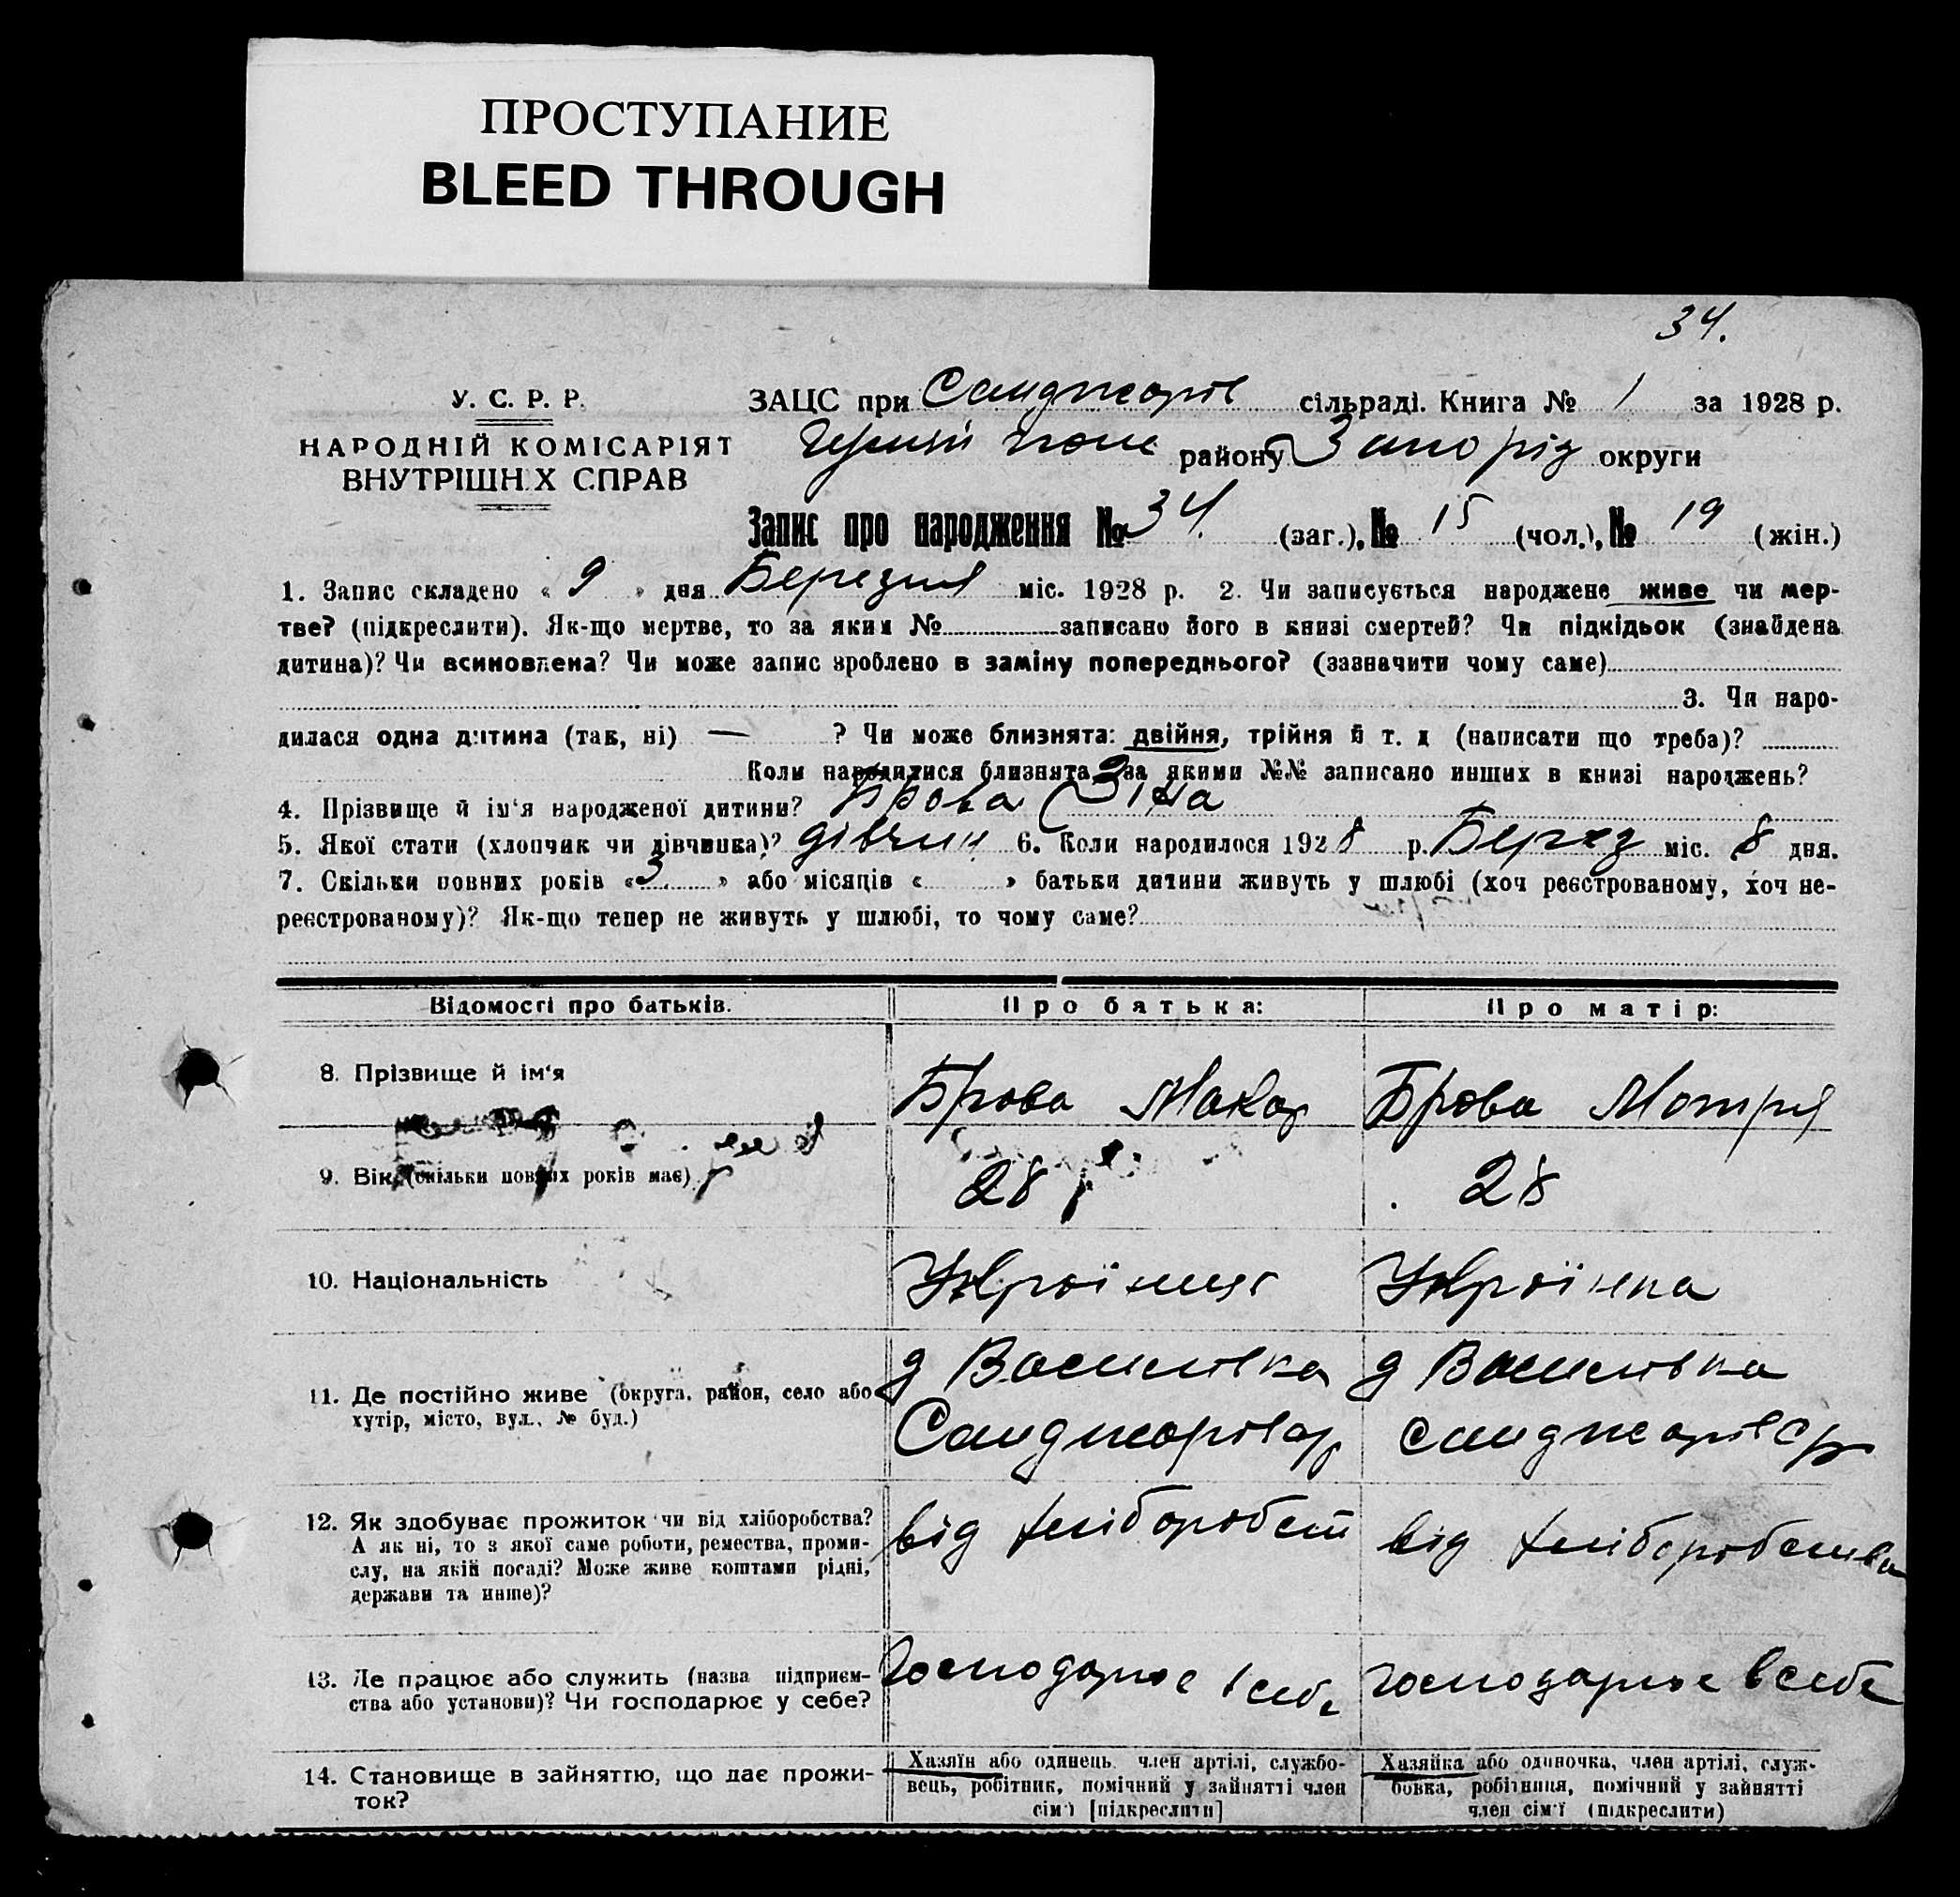 ПРОСТУПАНИЕ
BLEED THROUGH
34.
У. С. Р. Р.
НАРОДНІЙ КОМІСАРІЯТ
ВНУТРІШНІХ СПРАВ
ЗАЦС при Санджарів сільраді. Книга № 1 за 1928 р.
району Запоріз округи
Запис про народження № 34. (заг.), № 15 (чол.), № 19 (жін.)
1. Запис складено « 9 » дня Березня міс. 1928 р. 2. Чи записується народжене живе чи мер-
тве? (підкреслити). Як-що мертве, то за яким № записано його в книзі смертей? Чи підкідьок (знайдена
дитина)? Чи всиновлена? Чи може запис зроблено в заміну попереднього? (зазначити чому саме)
3. Чи наро-
дилася одна дитина (так, ні) — ? Чи може близнята: двійня, трійня й т. д (написати що треба)?
Коли народилися близнята, за якими №№ записано инших в книзі народжень?
4. Прізвище й ім‘я народженої дитини? Брова Зіна
5. Якої стати (хлопчик чи дівчинка)? дівчин 6. Коли народилося 1928 р. Берез міс. 8 дня.
7. Скільки повних років « 3 » або місяців « » батьки дитини живуть у шлюбі (хоч реєстрованому, хоч не-
реєстрованому)? Як-що тепер не живуть у шлюбі, то чому саме?
Відомості про батьків. Про батька: Про матір:
8. Прізвище й ім‘я Брова Макар Брова Мотря
9. Вік (скільки повних років має) 28 28
10. Національність Українця Українка
11. Де постійно живе (округа, район, село або
хутір, місто, вул., № буд.)
д Василівка д Василівка
Санджарівср Санджарівср
12. Як здобуває прожиток чи від хліборобства?
А як ні, то з якої саме роботи, ремества, проми-
слу, на якій посаді? Може живе коштами рідні,
держави та инше)?
від хліборобст від хліборобства
13. Де працює або служить (назва підприєм-
ства або установи)? Чи господарює у себе?
Господарює в себе господарює в себе
14. Становище в зайняттю, що дає прожи-
ток?
Хазяїн або одинець член артілі, службо-
вець, робітник, помічний у зайнятті член
сім‘ї [підкреслити]
Хазяйка або одиночка, член артілі, служ-
бовка, робітниця, помічний у зайнятті
член сім‘ї (підкреслити)